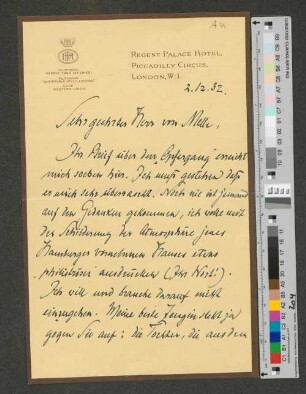 REGENT PALACE HOTEL,
PICCADILLY CIRCUS,
LONDON, W.1.
2.12.32.
Sehr geehrter Herr von Melle.
Ihr Brief über den "Opfergang" erreicht
mich soeben hier. Ich muss gestehen dass
er mich sehr überrascht. Noch nie ist jemand
auf den Gedanken gekommen, ich wolle mit
der Schilderung der Atmosphäre jenes
Hamburger vornehmen Hauses etwas
ausdrücken (Ihr Wort!).
Ich will und brauche darauf nicht
einzugehen. Meine beste Zeugin steht ja
gegen Sie auf: die Tochter, die aus dem